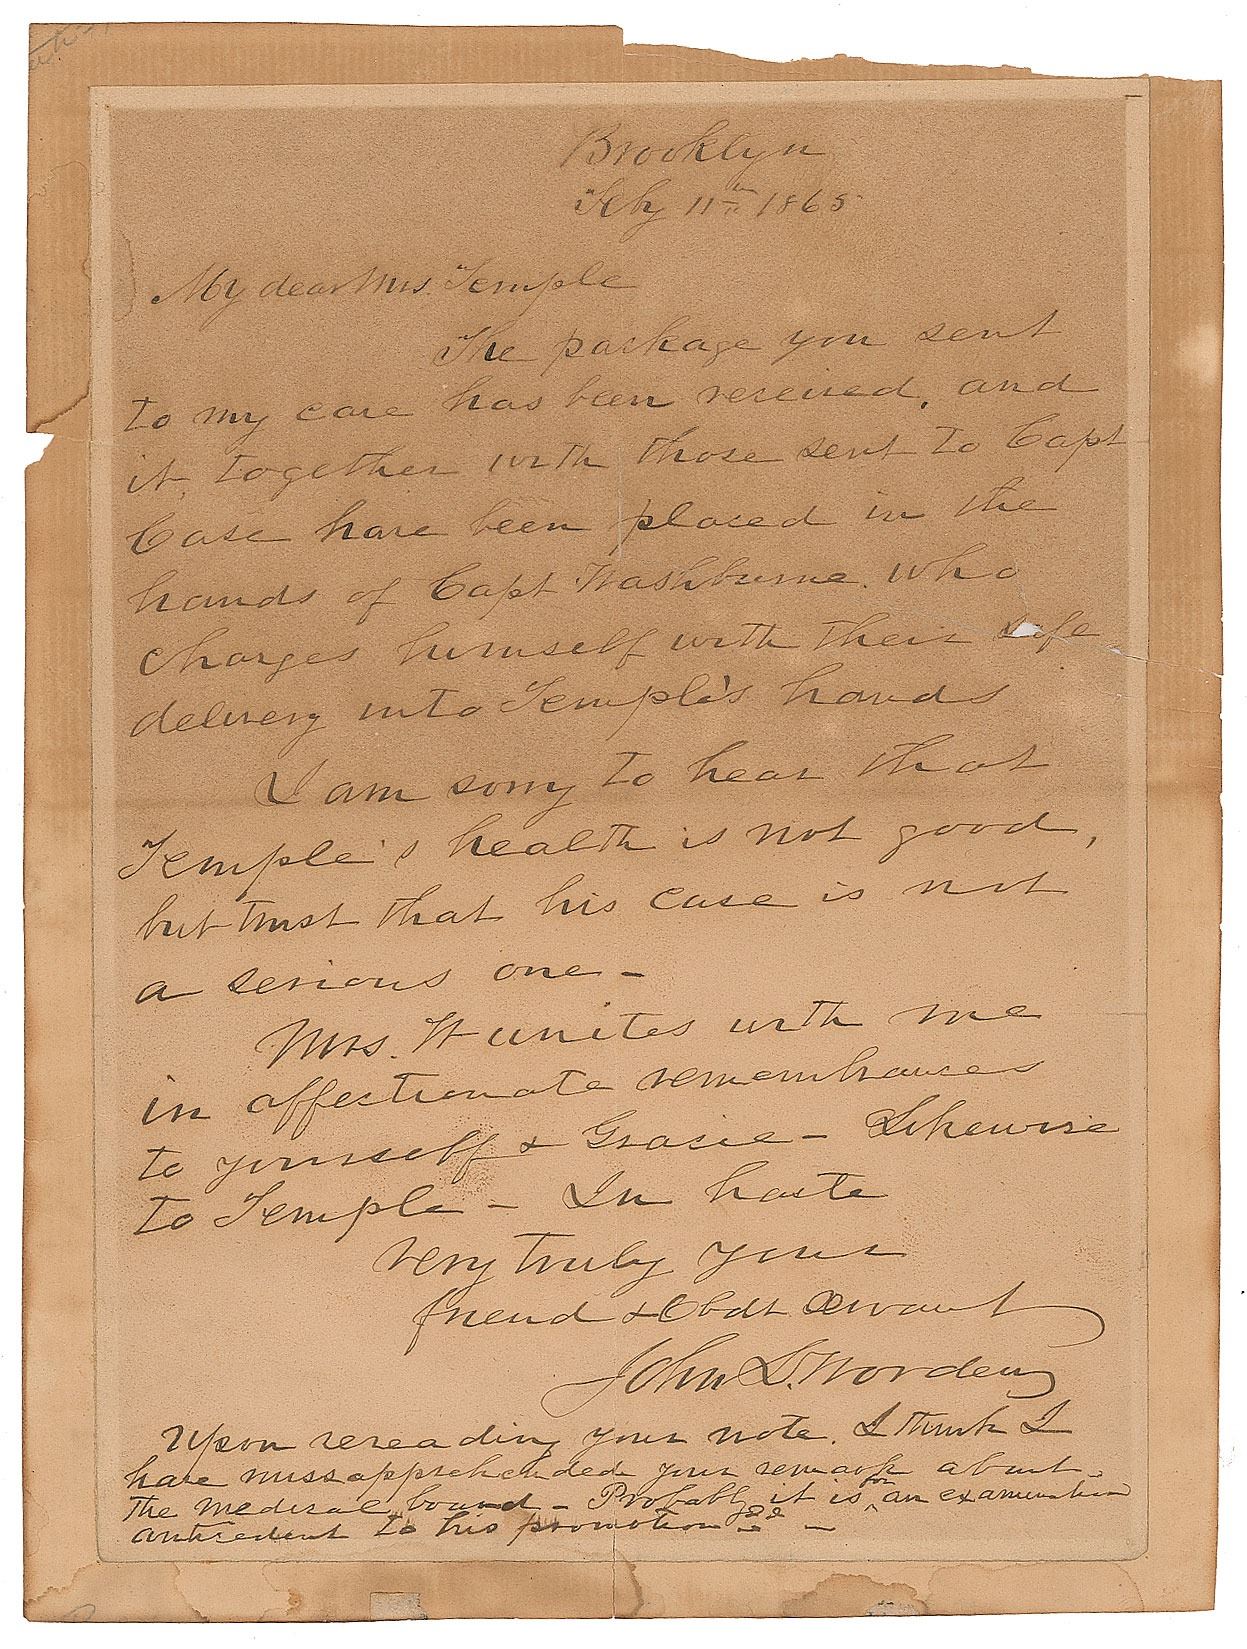 Brooklyn
Feby 11th 1865
My dear Mrs. Temple
The package you sent
to my care has been received, and
it, together with those sent to Capt
Case have been placed in the
hands of Capt Washburne. who
charges himself with their safe
delivery into Temple's hands
I am sorry to hear that
Temple's health is not good,
but trust that his case is not
a serious one -
Mrs. W unites with me
in affectionate remembrances
to yourself & Gracie - Likewise
to Temple - In haste
very truly your
friend & Obdt Servant
John L. Worden
Upon rereading your note. I think I
have missapprehended your remark about
the medical board - Probably it is for an examination
antecedent to his promotion -